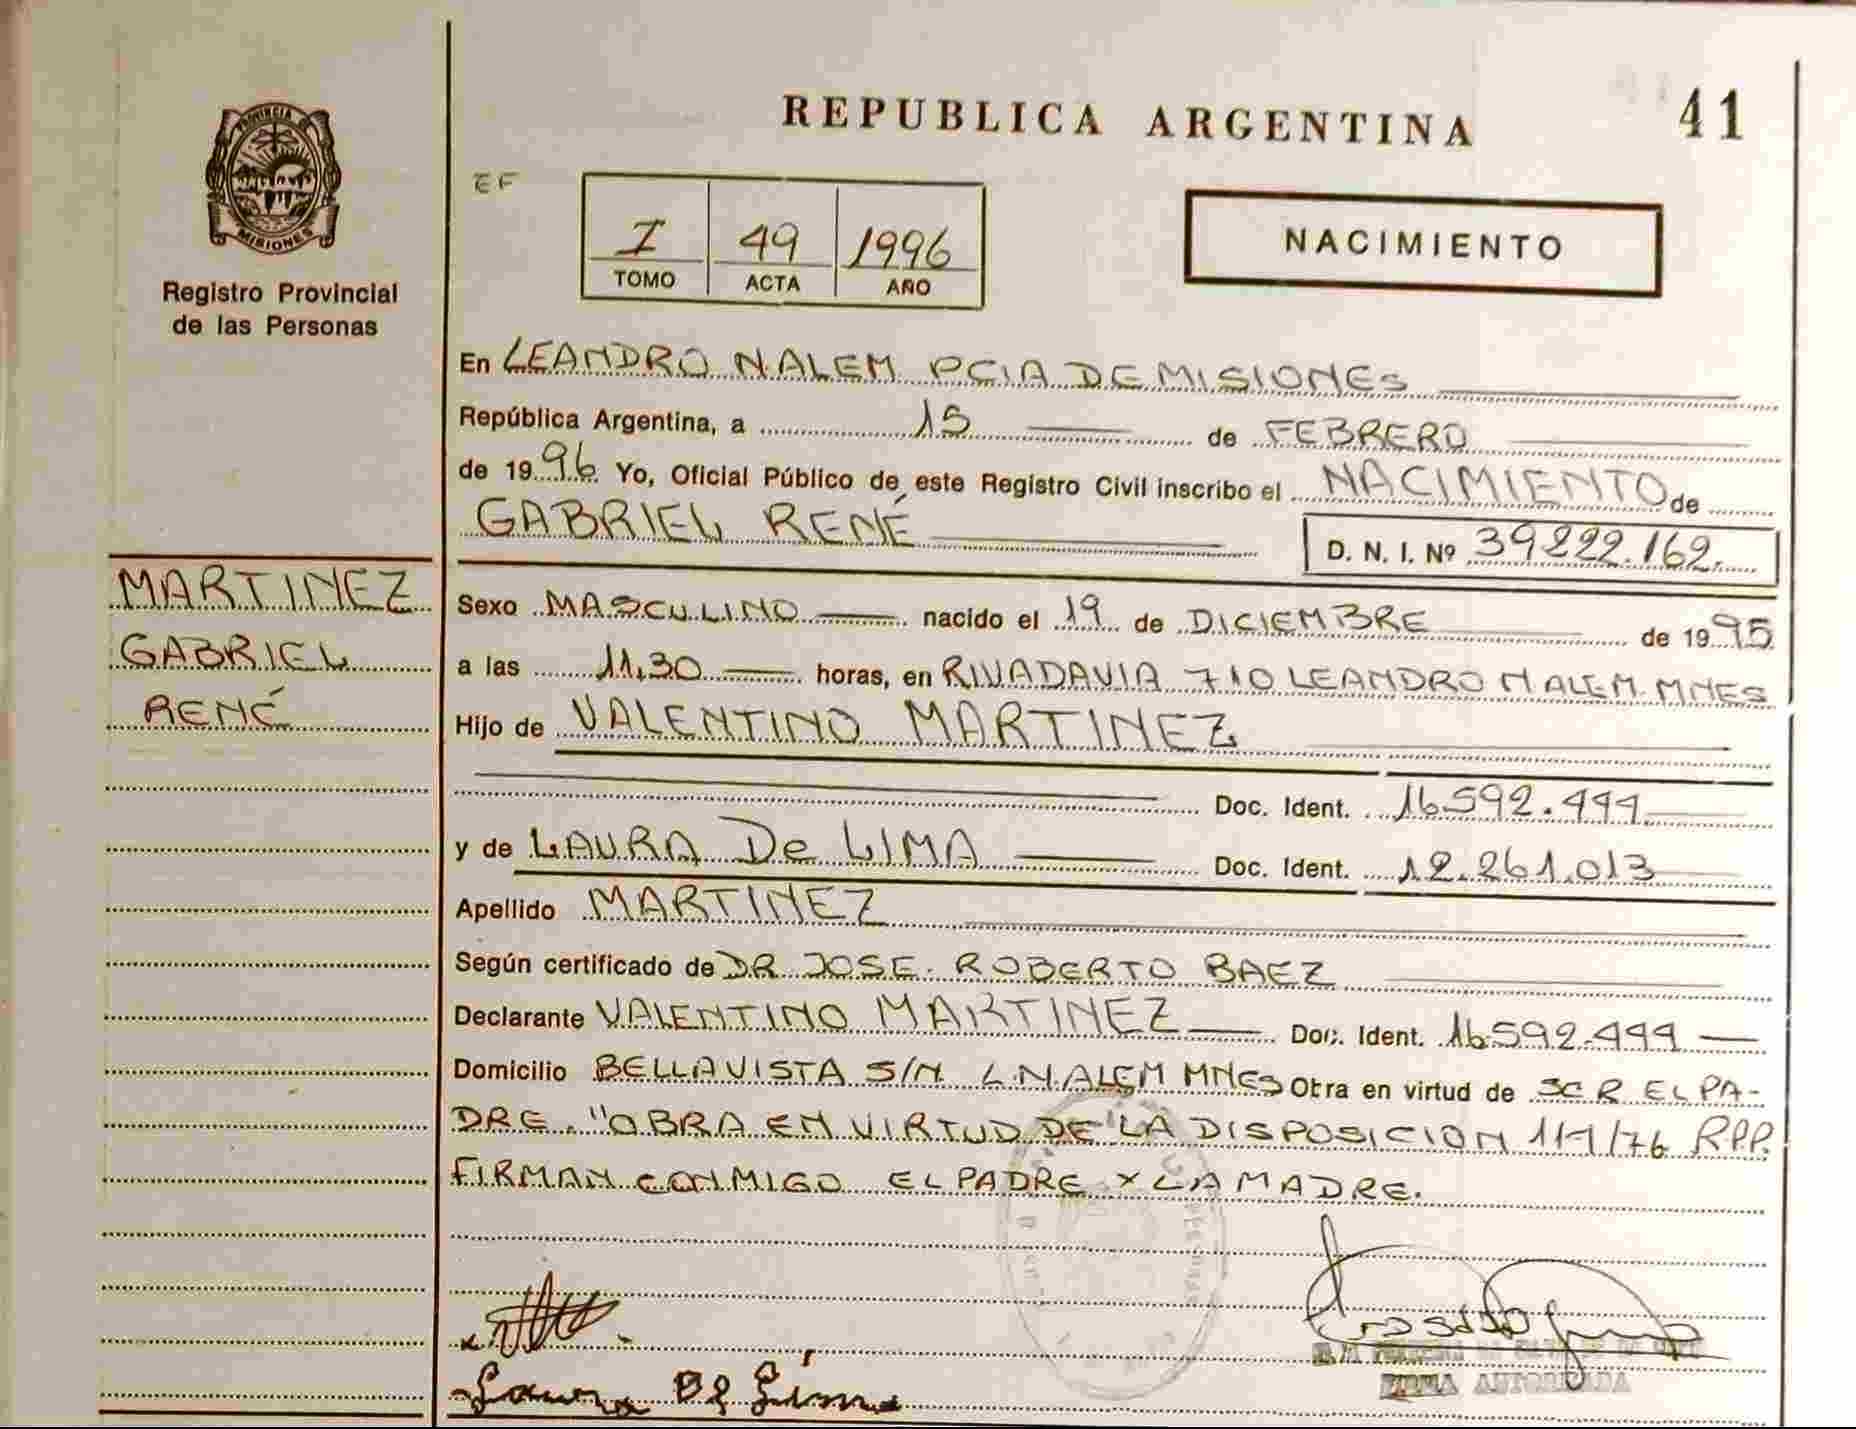 PROVINCIA DE
MISIONES
Registro Provincial
de las Personas
REPUBLICA ARGENTINA
41
EF
I 49 1996
TOMO ACTA AÑO
NACIMIENTO
En LEANDRO N ALEM PCIA DE MISIONES
República Argentina, a 15 de FEBRERO
de 1996 Yo, Oficial Público de este Registro Civil inscribo el NACIMIENTO de
GABRIEL RENÉ
D. N. I. Nº 39222.162.
MARTINEZ
GABRIEL
RENÉ
Sexo MASCULINO nacido el 19 de DICIEMBRE de 1995
a las 11,30 horas, en RIVADAVIA 710 LEANDRO N ALEM MNES
Hijo de VALENTINO MARTINEZ
Doc. Ident. 16.592.444
y de LAURA De LIMA Doc. Ident. 12.261.013
Apellido MARTINEZ
Según certificado de DR JOSE ROBERTO BAEZ
Declarante VALENTINO MARTINEZ Doc. Ident. 16.592.444
Domicilio BELLAVISTA S/N L.N.ALEM MNES Obra en virtud de SER EL PA-
DRE. "OBRA EN VIRTUD DE LA DISPOSICION 117/76 RPP.
FIRMAN CONMIGO EL PADRE Y LA MADRE.
Laura De Lima
FIRMA AUTORIZADA